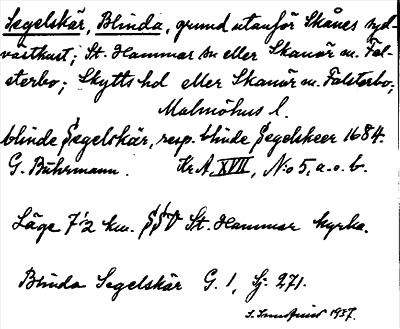 Segelskär, Blinda, grund utanför Skånes syd-
västkust; St. Hammar sn eller Skanör m. Fal-
sterbo; Skytts hd eller Skanör m. Falsterbo;
Malmöhus l.
blinde Segelskär, resp. blinde Segelskeer 1684.
G. Buhrmann. Kr A, XVII, N:o 5, a.o.b.
Läge 7 1/2 km. SSV St. Hammar kyrka.
Blinda Segelskär G. 1, Sj. 271.
1937.